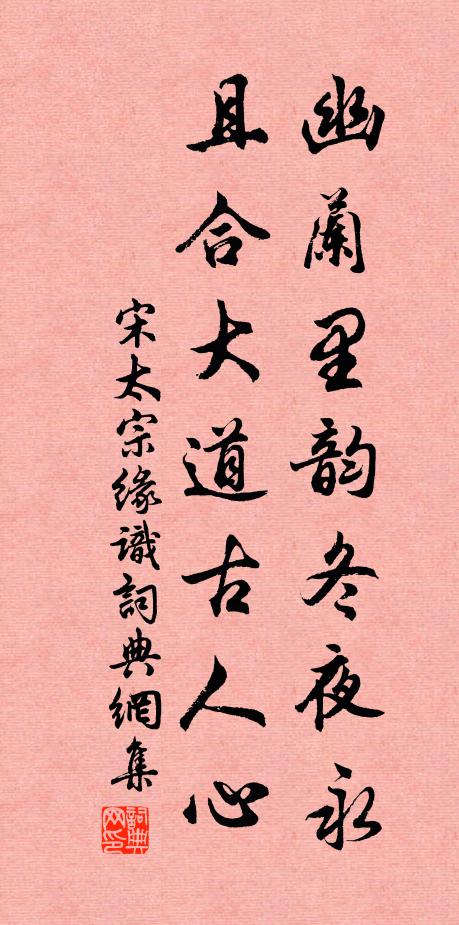 幽蘭里韵冬夜永
且合大道古人心
宋太宗緣識詞典網集
詞典网印